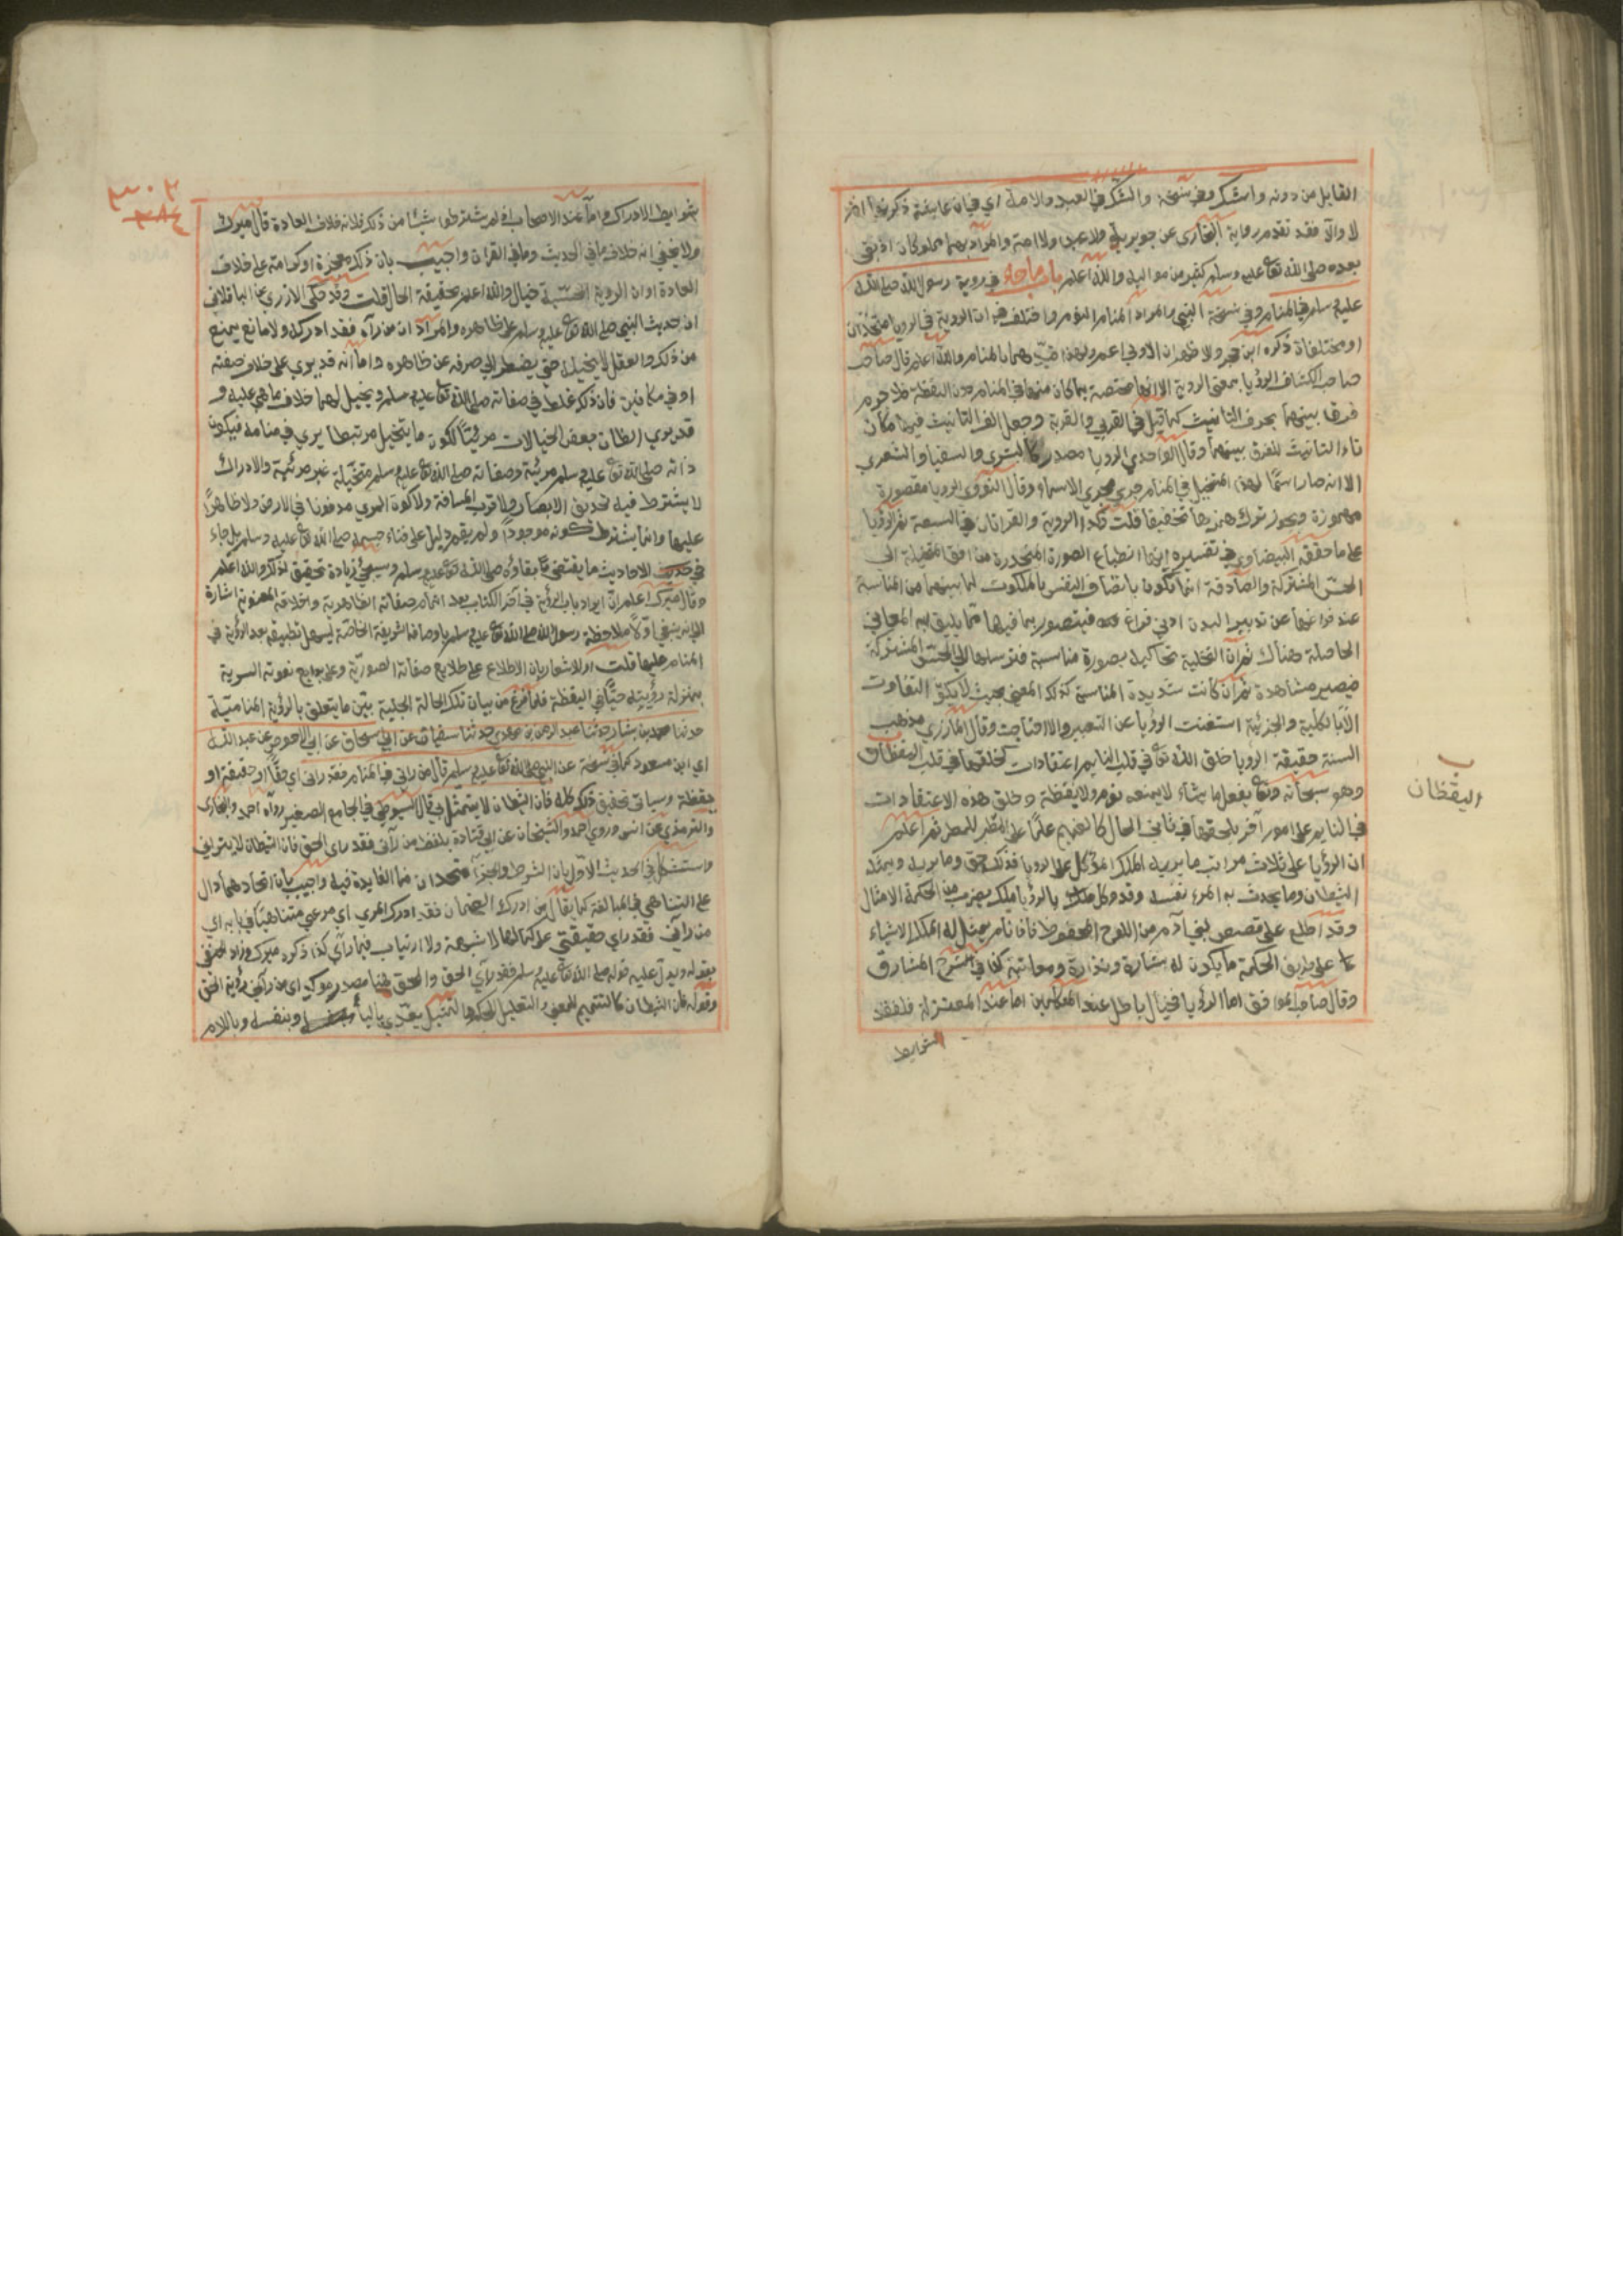 القايل من دونه واشك وفي نسخة والشك في العبد والامة اي في ان عايشة ذكرتهما ام
لا والا فقد تقدم رواية البخاري عن جويرية ولا عبدا ولا امة والمراد بهما مملوكان اذ بقي
بعده صلى الله تعا عليه وسلم كثير من مواليه والله اعلم باب ما جاء في روية رسول الله صلى الله
عليه وسلم في المنام وفي نسخة النبي والمراد المنام النوم واختلف في ان الروية والرويا متحدتان
او مختلفان ذكره ابن حجر والاظهر ان الاولى اعم ولهذا قيدها بالمنام والله اعلم قال صاحب
صاحب الكشاف الرؤيا بمعنى الروية الا انها مختصة بما كان منها في المنام دون اليقظة فلا جرم
فرق بينهما بحرف التانيث كما قيل في القربى والقربة وجعل الف التانيث فيها مكان
تاء التانيث للفرق بينهما وقال الواحدي الرويا مصدر كالبشرى والسقيا والشورى
الا انه صار اسما لهذا المتخيل في المنام جرى مجرى الاسماء وقال النووي الرويا مقصورة
مهموزة ويجوز ترك همزها تخفيفا قلت وكذا الروية والقراتان في السبعة ثم الرؤيا
على ما حققه البيضاوي في تفسيره انها انطباع الصورة المنحدرة من افق المتخيلة الى
الحس المشتركة والصادقة انما تكون باتصاف النفس بالملكوت لما بينهما من المناسبة
عند فراغها عن تدبير البدن ادنى فراغ فتتصور بما فيها مما يليق به المعاني
الحاصلة هناك ثم ان المتخيلة تحاكيه بصورة مناسبة فترسلها الى الحس المشتركة
فيصير مشاهدة ثم ان كانت شديدة المناسبة كذلك المعنى بحيث لا يكون التفاوت
الا بالكلية والجزئية استغنت الرؤيا عن التعبير والا احتاجت وقال المازري مذهب
السنة حقيقة الرويا خلق الله تعا في قلب النايم اعتقادات كخلقها في قلب اليقظان
اليقظان
وهو سبحانه وتعا يفعل ما يشاء لا يمنعه نوم ولا يقظة وخلق هذه الاعتقادات
في النايم على امور آخر يلحقها في ثاني الحال كالغيم علما على المطر للمطر ثم اعلم
ان الرؤيا على ثلاث مراتب ما يريه الملك الموكل على الرويا فذلك حق وما يريه ويمثله
الشيطان وما يحدث به المرء نفسه وقد وكل ملك بالرؤيا ملك يضرب من الحكمة الامثال
وقد اطلع على قصص بني آدم من اللوح المحفوظ فاذا نام يمثل له الملك الاشياء
على طريق الحكمة ما يكون له بشارة ونذارة ومعاتبة كذا في شرح المشارق
وقال صاحب المواقف اما الرؤيا فخيال باطل عند المتكلمين اما عند المعتزلة فلفقد
شرايط
٣٠٢
٢٨٤
شرايط الادراك واما عند الاصحاب اذ لم يشترطوا شيئا من ذلك فلانه خلاف العادة قال ميرك
ولا يخفى انه خلاف ما في الحديث وما في القران واجيب بان ذلك معجزة او كرامة على خلاف
العادة او ان الروية الحسية خيال والله اعلم بحقيقة الحال قلت وقد حكى الازري عن الباقلاني
ان حديث النبي صلى الله تعا عليه وسلم على ظاهره والمراد ان من رآه فقد ادركه ولا مانع يمنع
من ذلك والعقل لا يحيله حتى يضطر الى صرفه عن ظاهره واما انه قد يرى على خلاف صفته
او في مكانين فان ذلك غلط في صفاته صلى الله تعا عليه وسلم وتخيل لهما خلاف ما هي عليه و
قد يرى الظان بعض الخيالات مرئيا لكون ما يتخيل مرتبطا يرى في منامه فيكون
ذاته صلى الله تعا عليه وسلم مرئية وصفاته صلى الله تعا عليه وسلم متخيلة غير مرئية والادراك
لا يشترط فيه تحديق الابصار ولا قرب المسافة ولا كون المرئي مدفونا في الارض ولا ظاهرا
عليها وانما يشترط كونه موجودا ولم يقم دليل على فناء جسمه صلى الله تعا عليه وسلم بل جاء
في الاحاديث ما يقتضي بقاؤه صلى الله تعا عليه وسلم وسيجئ زيادة تحقيق لذلك والله اعلم
وقال ميرك اعلم ان ايراد باب الرؤية في آخر الكتاب بعد اتمام صفاته الظاهرية واخلاقه المعنوية اشارة
الى انه ينبغي اولا ملاحظة رسول الله صلى الله تعا عليه وسلم باوصافه الشريفة الخاصة ليسهل تطبيقه بعد الرؤية في
المنام عليها قلت او للاشعار بان الاطلاع على طلايع صفاته الصورية وعلى بدايع نعوته السرية
بمنزلة رؤيته حيا في اليقظة فلما فرغ من بيان تلك الحالة الجلية بين ما يتعلق بالرؤية المنامية
حدثنا محمد بن بشار حدثنا عبد الرحمن بن مهدي حدثنا سفيان عن ابي اسحاق عن ابي الاحوص عن عبد الله
اي ابن مسعود كما في نسخة عن النبي صلى الله تعا عليه وسلم قال من راني في المنام فقد راني اي حقا او حقيقة او
يقظة وسياتي تحقيق ذلك كله فان الشيطان لا يتمثل بي قال السيوطي في الجامع الصغير رواه احمد والبخاري
والترمذي عن انس وروى احمد والشيخان عن ابي قتادة بلفظ من رآني فقد راى الحق فان الشيطان لا يتزايى
واستشكل في الحديث الاول بان الشرط والجزاء متحدان فما الفايدة فيه واجيب بان اتحادهما دال
على التناهي في المبالغة كما يقال من ادرك الضمان فقد ادرك المرعى اي مرعى متناهيا في بابه اي
من رآني فقد راى حقيقتي على كمالها لا شبهة ولا ارتياب فيما راى كذا ذكره ميرك وزاد الحنفي
بقوله ويدل عليه قوله صلى الله تعا عليه وسلم فقد راى الحق والحق هنا مصدر موكد اي من راني رؤية الحق
وقوله فان الشيطان كالتتميم للمعنى والتعليل للحكم والتمثيل يعدى بالباء وبنفسه وباللام